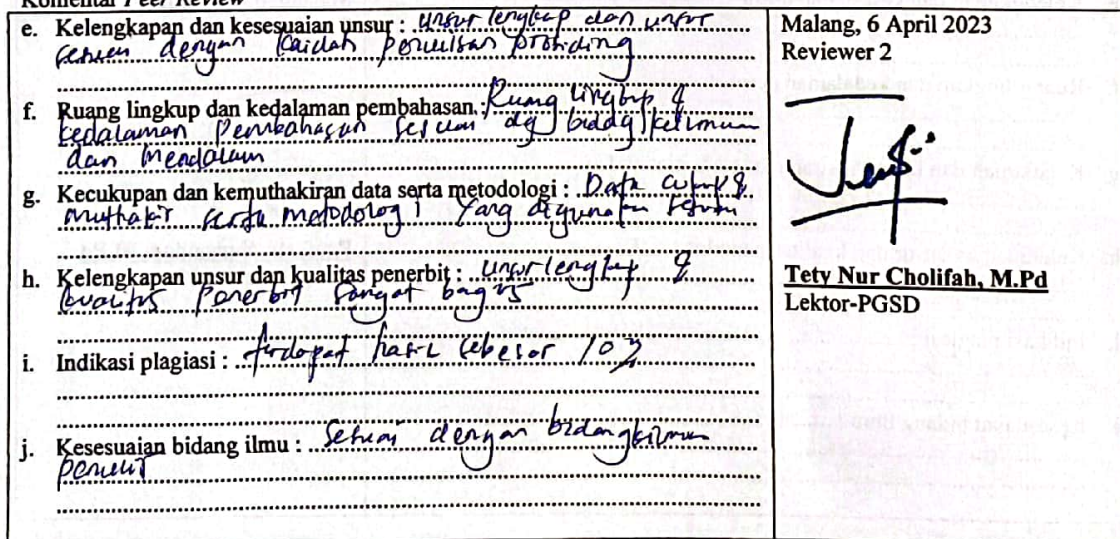 Komentar Peer Review
e. Kelengkapan dan kesesuaian unsur : unsur lengkap dan unsur
sesuai dengan kaidah penulisan prosiding
f. Ruang lingkup dan kedalaman pembahasan : Ruang lingkup &
kedalaman pembahasan sesuai dg bidang keilmuan
dan mendalam
g. Kecukupan dan kemuthakiran data serta metodologi : Data cukup &
muthakir serta metodologi yang digunakan sesuai
h. Kelengkapan unsur dan kualitas penerbit : unsur lengkap &
kualitas penerbit sangat bagus
i. Indikasi plagiasi : terdapat hasil sebesar 10%
j. Kesesuaian bidang ilmu : Sesuai dengan bidang ilmu
penulis
Malang, 6 April 2023
Reviewer 2
Tety Nur Cholifah, M.Pd
Lektor-PGSD